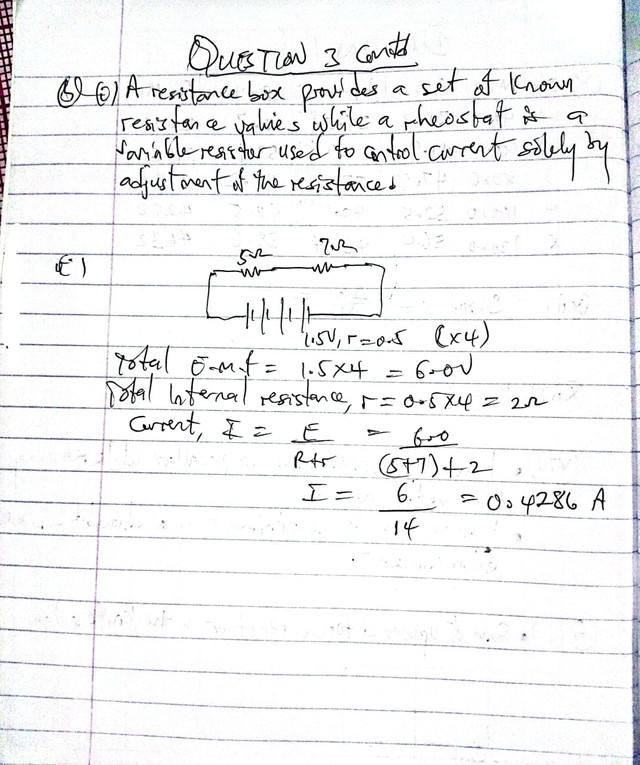 QUESTION 3 Contd
(b) (i) A resistance box provides a set of known
resistance values while a rheostat is a
variable resistor used to control current solely by
adjustment of the resistance.
5Ω 7Ω
1.5V, r = 0.5 (x4)
Total E.m.f = 1.5 x 4 = 6.0V
Total Internal resistance, r = 0.5x4 = 2Ω
Current, I = E = 6.0
R+r (5+7)+2
I = 6 = 0.4286 A
14